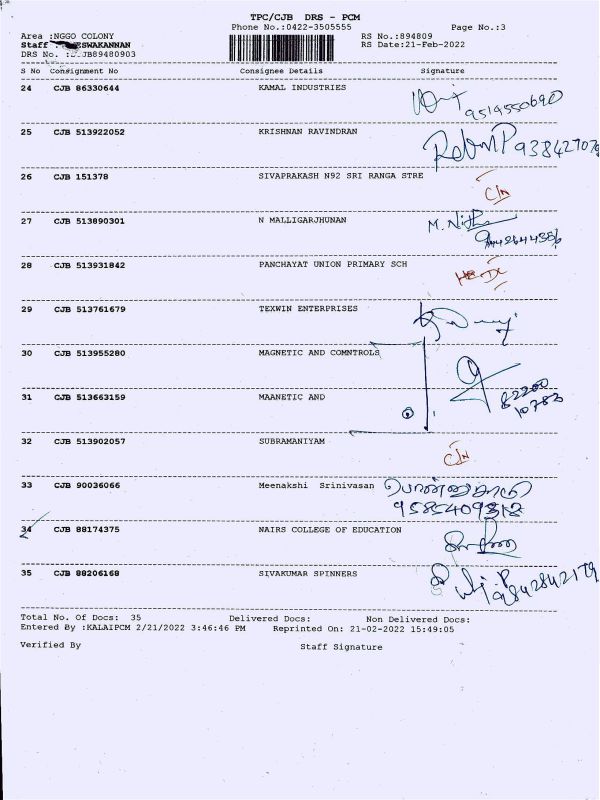 TPC/CJB DRS - PCM
Phone No.:0422-3505555 Page No.:3
Area :NGGO COLONY RS No.:894809
Staff SWAKANNAN RS Date:21-Feb-2022
DRS No. JB89480903
S No Consignment No Consignee Details Signature
24 CJB 86330644 KAMAL INDUSTRIES
9514550690
25 CJB 513922052 KRISHNAN RAVINDRAN
26 CJB 151378 SIVAPRAKASH N92 SRI RANGA STRE
C/N
27 CJB 513890301 N MALLIGARJHUNAN
28 CJB 513931842 PANCHAYAT UNION PRIMARY SCH
29 CJB 513761679 TEXWIN ENTERPRISES
30 CJB 513955280 MAGNETIC AND COMNTROLS
82200
10782
31 CJB 513663159 MAANETIC AND
32 CJB 513902057 SUBRAMANIYAM
C/N
33 CJB 90036066 Meenakshi Srinivasan
9585409313
34 CJB 88174375 NAIRS COLLEGE OF EDUCATION
35 CJB 88206168 SIVAKUMAR SPINNERS
9842842179
Total No. Of Docs: 35 Delivered Docs: Non Delivered Docs:
Entered By :KALAIPCM 2/21/2022 3:46:46 PM Reprinted On: 21-02-2022 15:49:05
Verified By Staff Signature